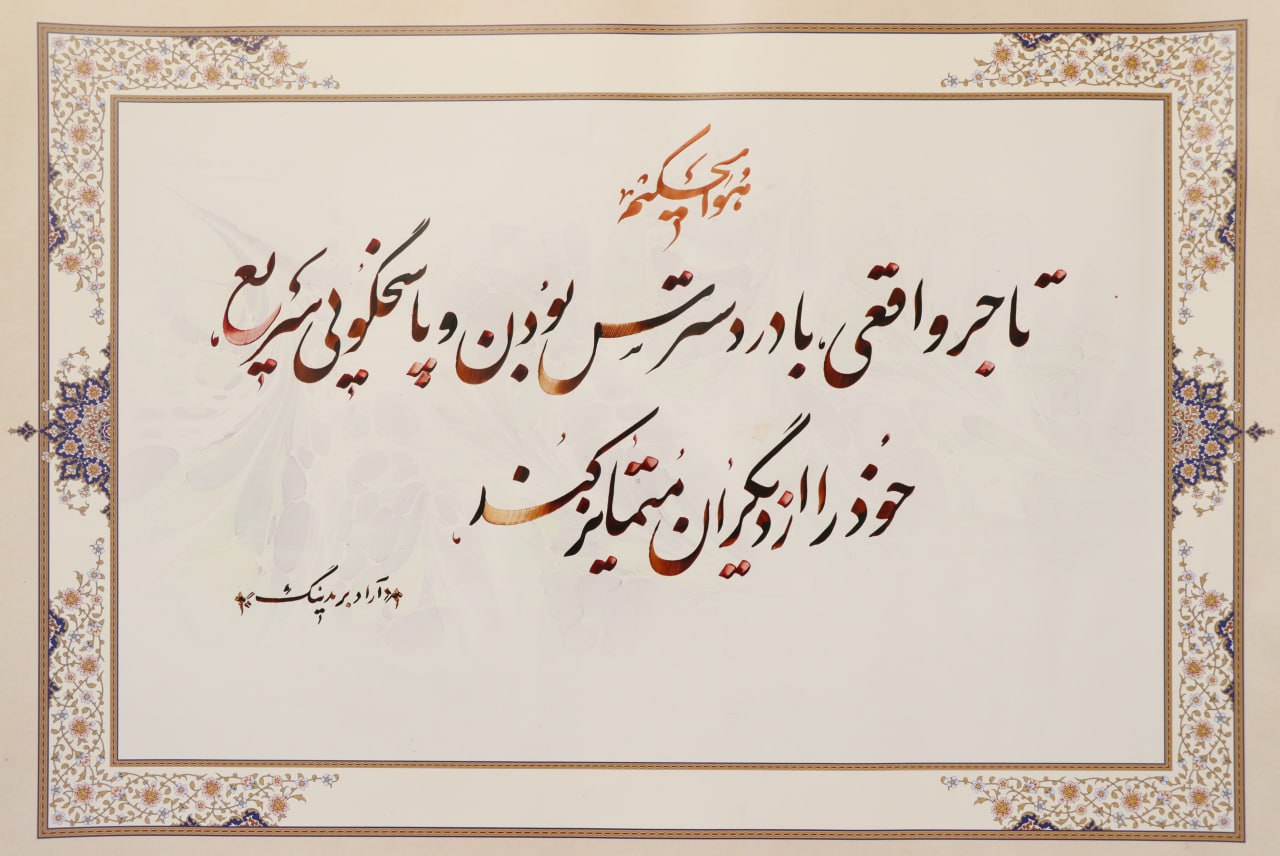 هو الحکیم
تاجر واقعی، با در دسترس بودن و پاسخگویی سریع
خود را از دیگران متمایز کند
آراد برندینگ